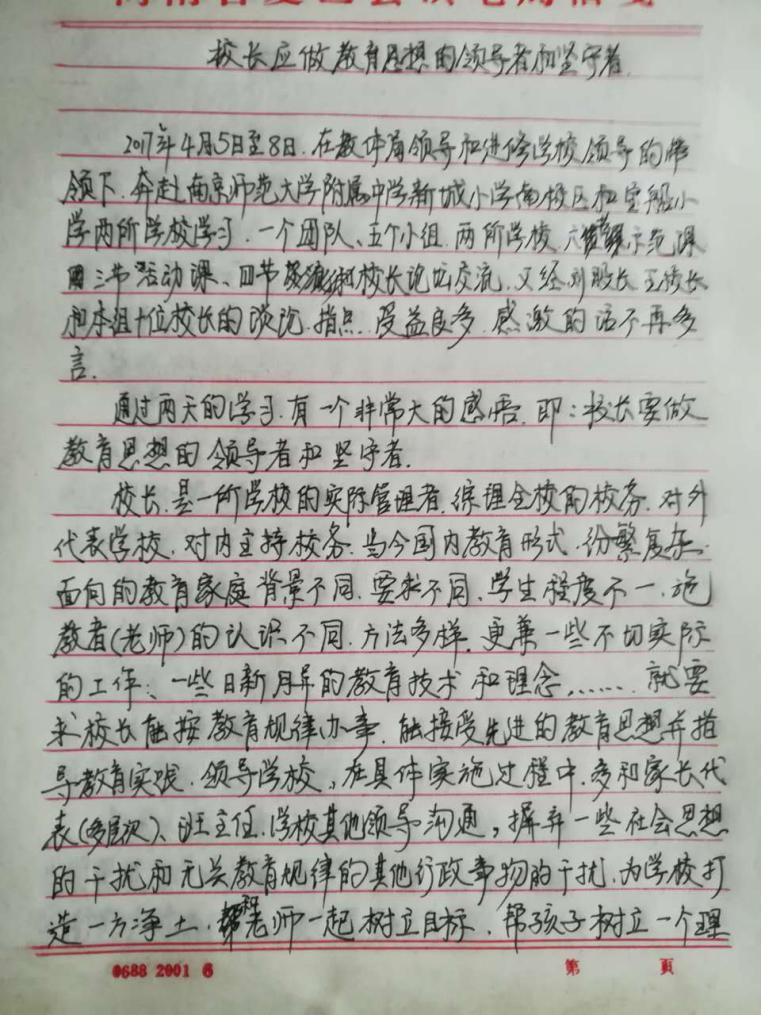 校长应做教育思想的领导者和坚守者.
2017年4月5日至8日.在教体局领导和进修学校领导的带
领下.奔赴南京师范大学附属中学新城小学南校区和宝船小
学两所学校学习.一个团队、五个小组.两所学校.六示范课
三节活动课、四节校长论坛交流.又经刘股长王校长
和本组十位校长的谈论.指点.受益良多.感激的话不再多
言.
通过两天的学习.有一个非常大的感悟.即:校长要做
教育思想的领导者和坚守者.
校长.是一所学校的实际管理者.综理全校的校务.对外
代表学校.对内主持校务.当今国内教育形式.纷繁复杂.
面向的教育家庭背景不同.要求不同.学生程度不一.施
教者(老师)的认识不同.方法多样.更兼一些不切实际
的工作、一些日新月异的教育技术和理念,......就要
求校长能按教育规律办事.能接受先进的教育思想并指
导教育实践.领导学校,在具体实施过程中.多和家长代
表(多层次)、班主任.学校其他领导沟通,摒弃一些社会思想
的干扰和无关教育规律的其他行政事物的干扰.为学校打
造一方净土.老师一起树立目标.帮孩子树立一个理
0688 2001 6
第 页